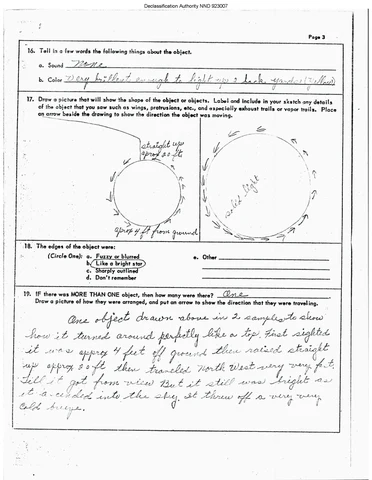 Declassification Authority NND 923007
Page 3
16. Tell in a few words the following things about the object.
a. Sound None
b. Color Very brilliant enough to light up 2 back yards (Yellow)
17. Draw a picture that will show the shape of the object or objects. Label and include in your sketch any details
of the object that you saw such as wings, protrusions, etc., and especially exhaust trails or vapor trails. Place
an arrow beside the drawing to show the direction the object was moving.
straight up
aprox 20 fts
solid light
aprox 4 ft from ground
18. The edges of the object were:
(Circle One): a. Fuzzy or blurred
b. Like a bright star
c. Sharply outlined
d. Don't remember
e. Other
19. IF there was MORE THAN ONE object, then how many were there? One
Draw a picture of how they were arranged, and put an arrow to show the direction that they were traveling.
One object drawn above in 2 samples to show
how it turned around perfectly like a top. First sighted
it was approx 4 feet off ground then raised straight
up approx 20 ft then traveled North West very very fast.
Till it got from view But it still was bright as
it a-cended into the sky. It threw off a very very
cold breeze.